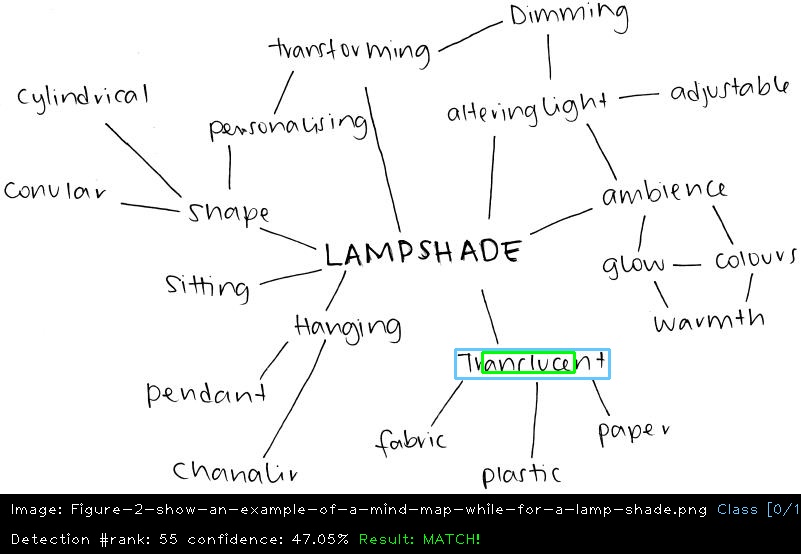 Dimming
transforming
cylindrical
alteringlight
adjustable
personalising
conular
shape
ambience
LAMPSHADE
glow
colours
sitting
Hanging
warmth
Tranrlucent
pendant
fabric
paper
chanaliv
plastic
Image: Figure-2-show-an-example-of-a-mind-map-while-for-a-lamp-shade.png Class [0/1
Detection #rank: 55 confidence: 47.05% Result: MATCH!